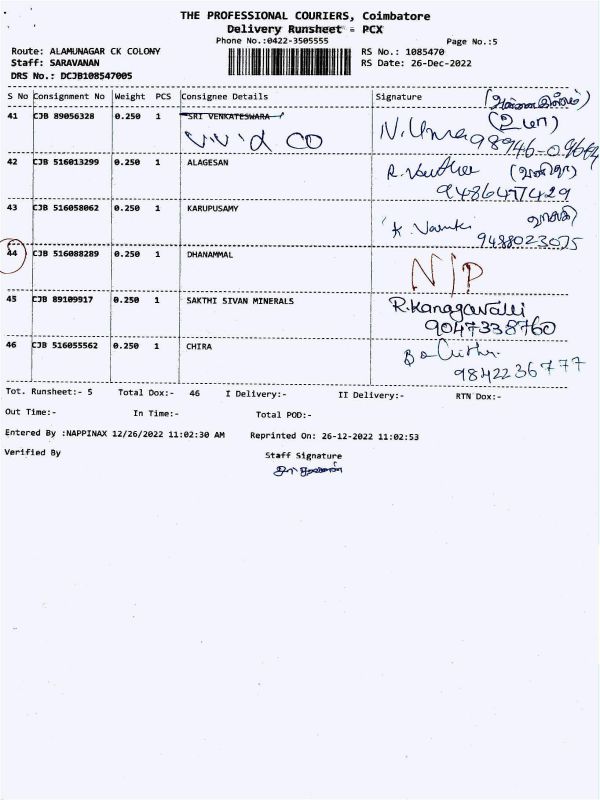 THE PROFESSIONAL COURIERS, Coimbatore
Delivery Runsheet - PCX
Phone No.:0422-3505555
Page No.:5
Route: ALAMUNAGAR CK COLONY
RS No.: 1085470
Staff: SARAVANAN
RS Date: 26-Dec-2022
DRS No.: DCJB108547005
S No Consignment No Weight PCS Consignee Details Signature
41 CJB 89056328 0.250 1 SRI VENKATESWARA
(உமா)
ViVid CO N. Uma
42 CJB 516013299 0.250 1 ALAGESAN R.
9486477429
43 CJB 516058062 0.250 1 KARUPUSAMY
K
9488023075
44 CJB 516088289 0.250 1 DHANAMMAL N/P
45 CJB 89109917 0.250 1 SAKTHI SIVAN MINERALS R. Kanagavalli
9047338760
46 CJB 516055562 0.250 1 CHIRA
9842236777
Tot. Runsheet:- 5 Total Dox:- 46 I Delivery:- II Delivery:- RTN Dox:-
Out Time:- In Time:- Total POD:-
Entered By :NAPPINAX 12/26/2022 11:02:30 AM Reprinted On: 26-12-2022 11:02:53
Verified By Staff Signature